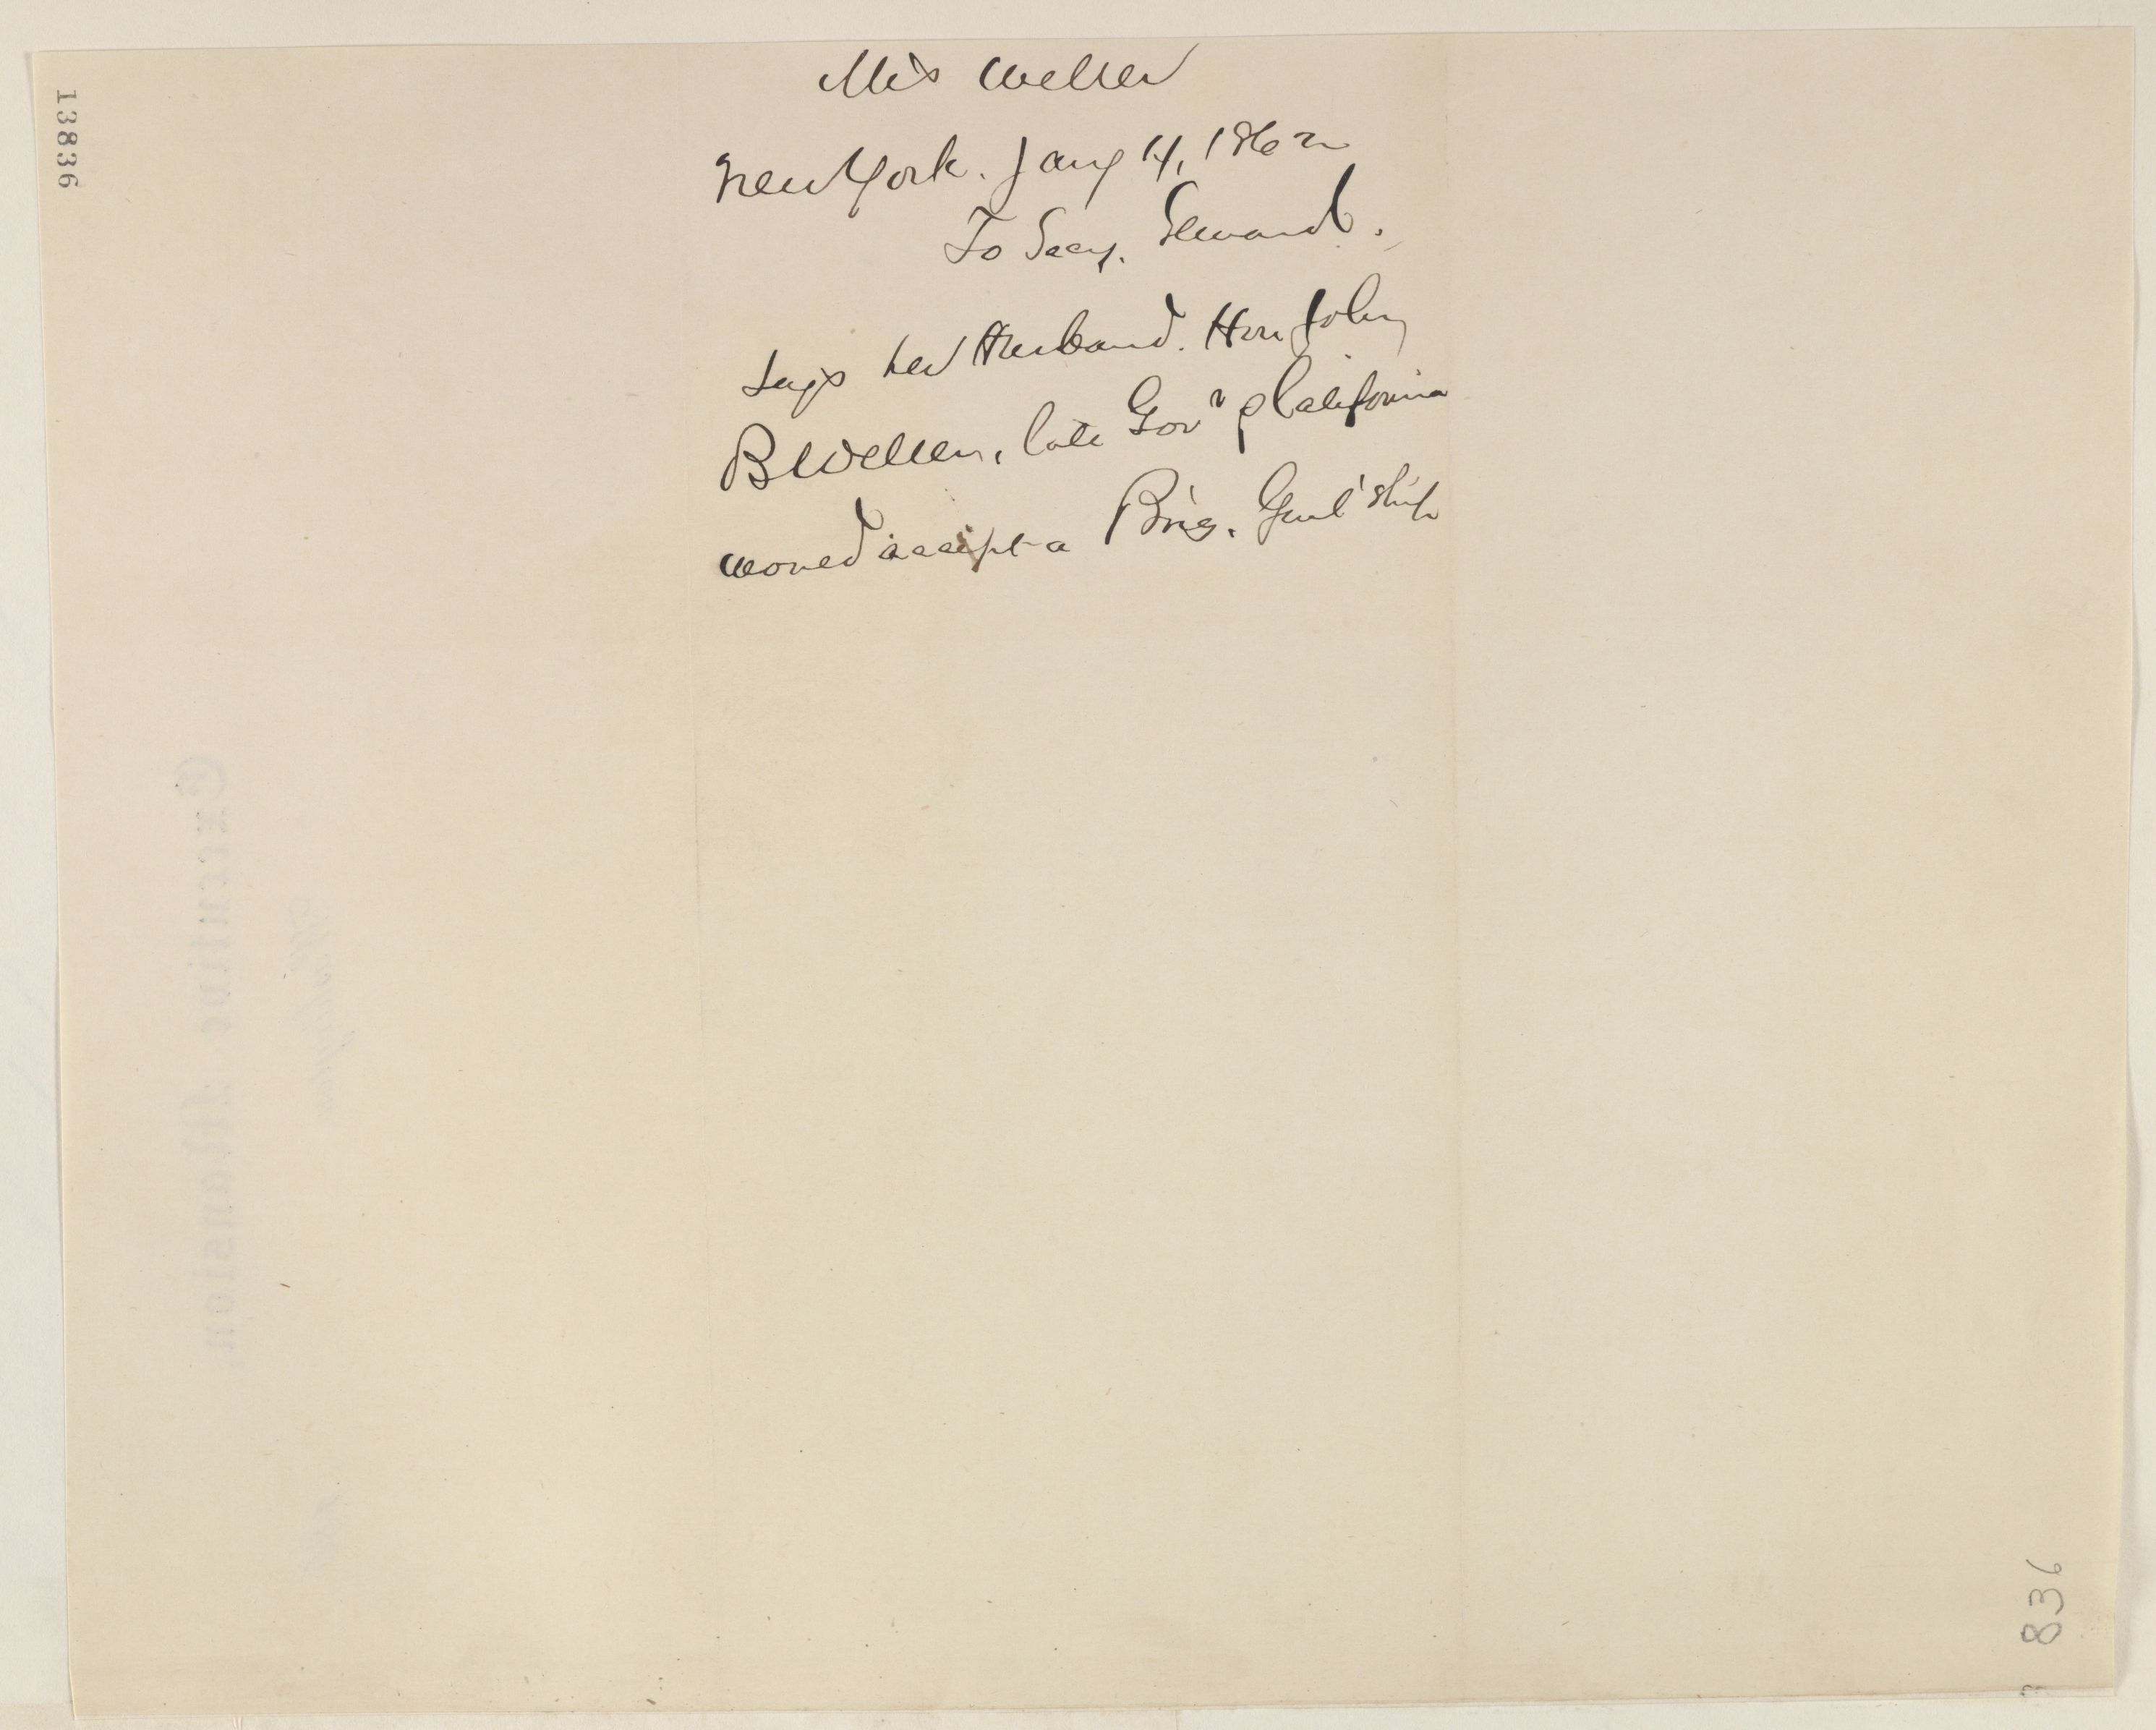 Mrs Weller
New York. Jany 14, 1862
To Secy. Seward.
Says her Husband. Hon John
B Weller, late Govr of California
would accept a Brig. Genl'ship
13836
Executive Mansion
836